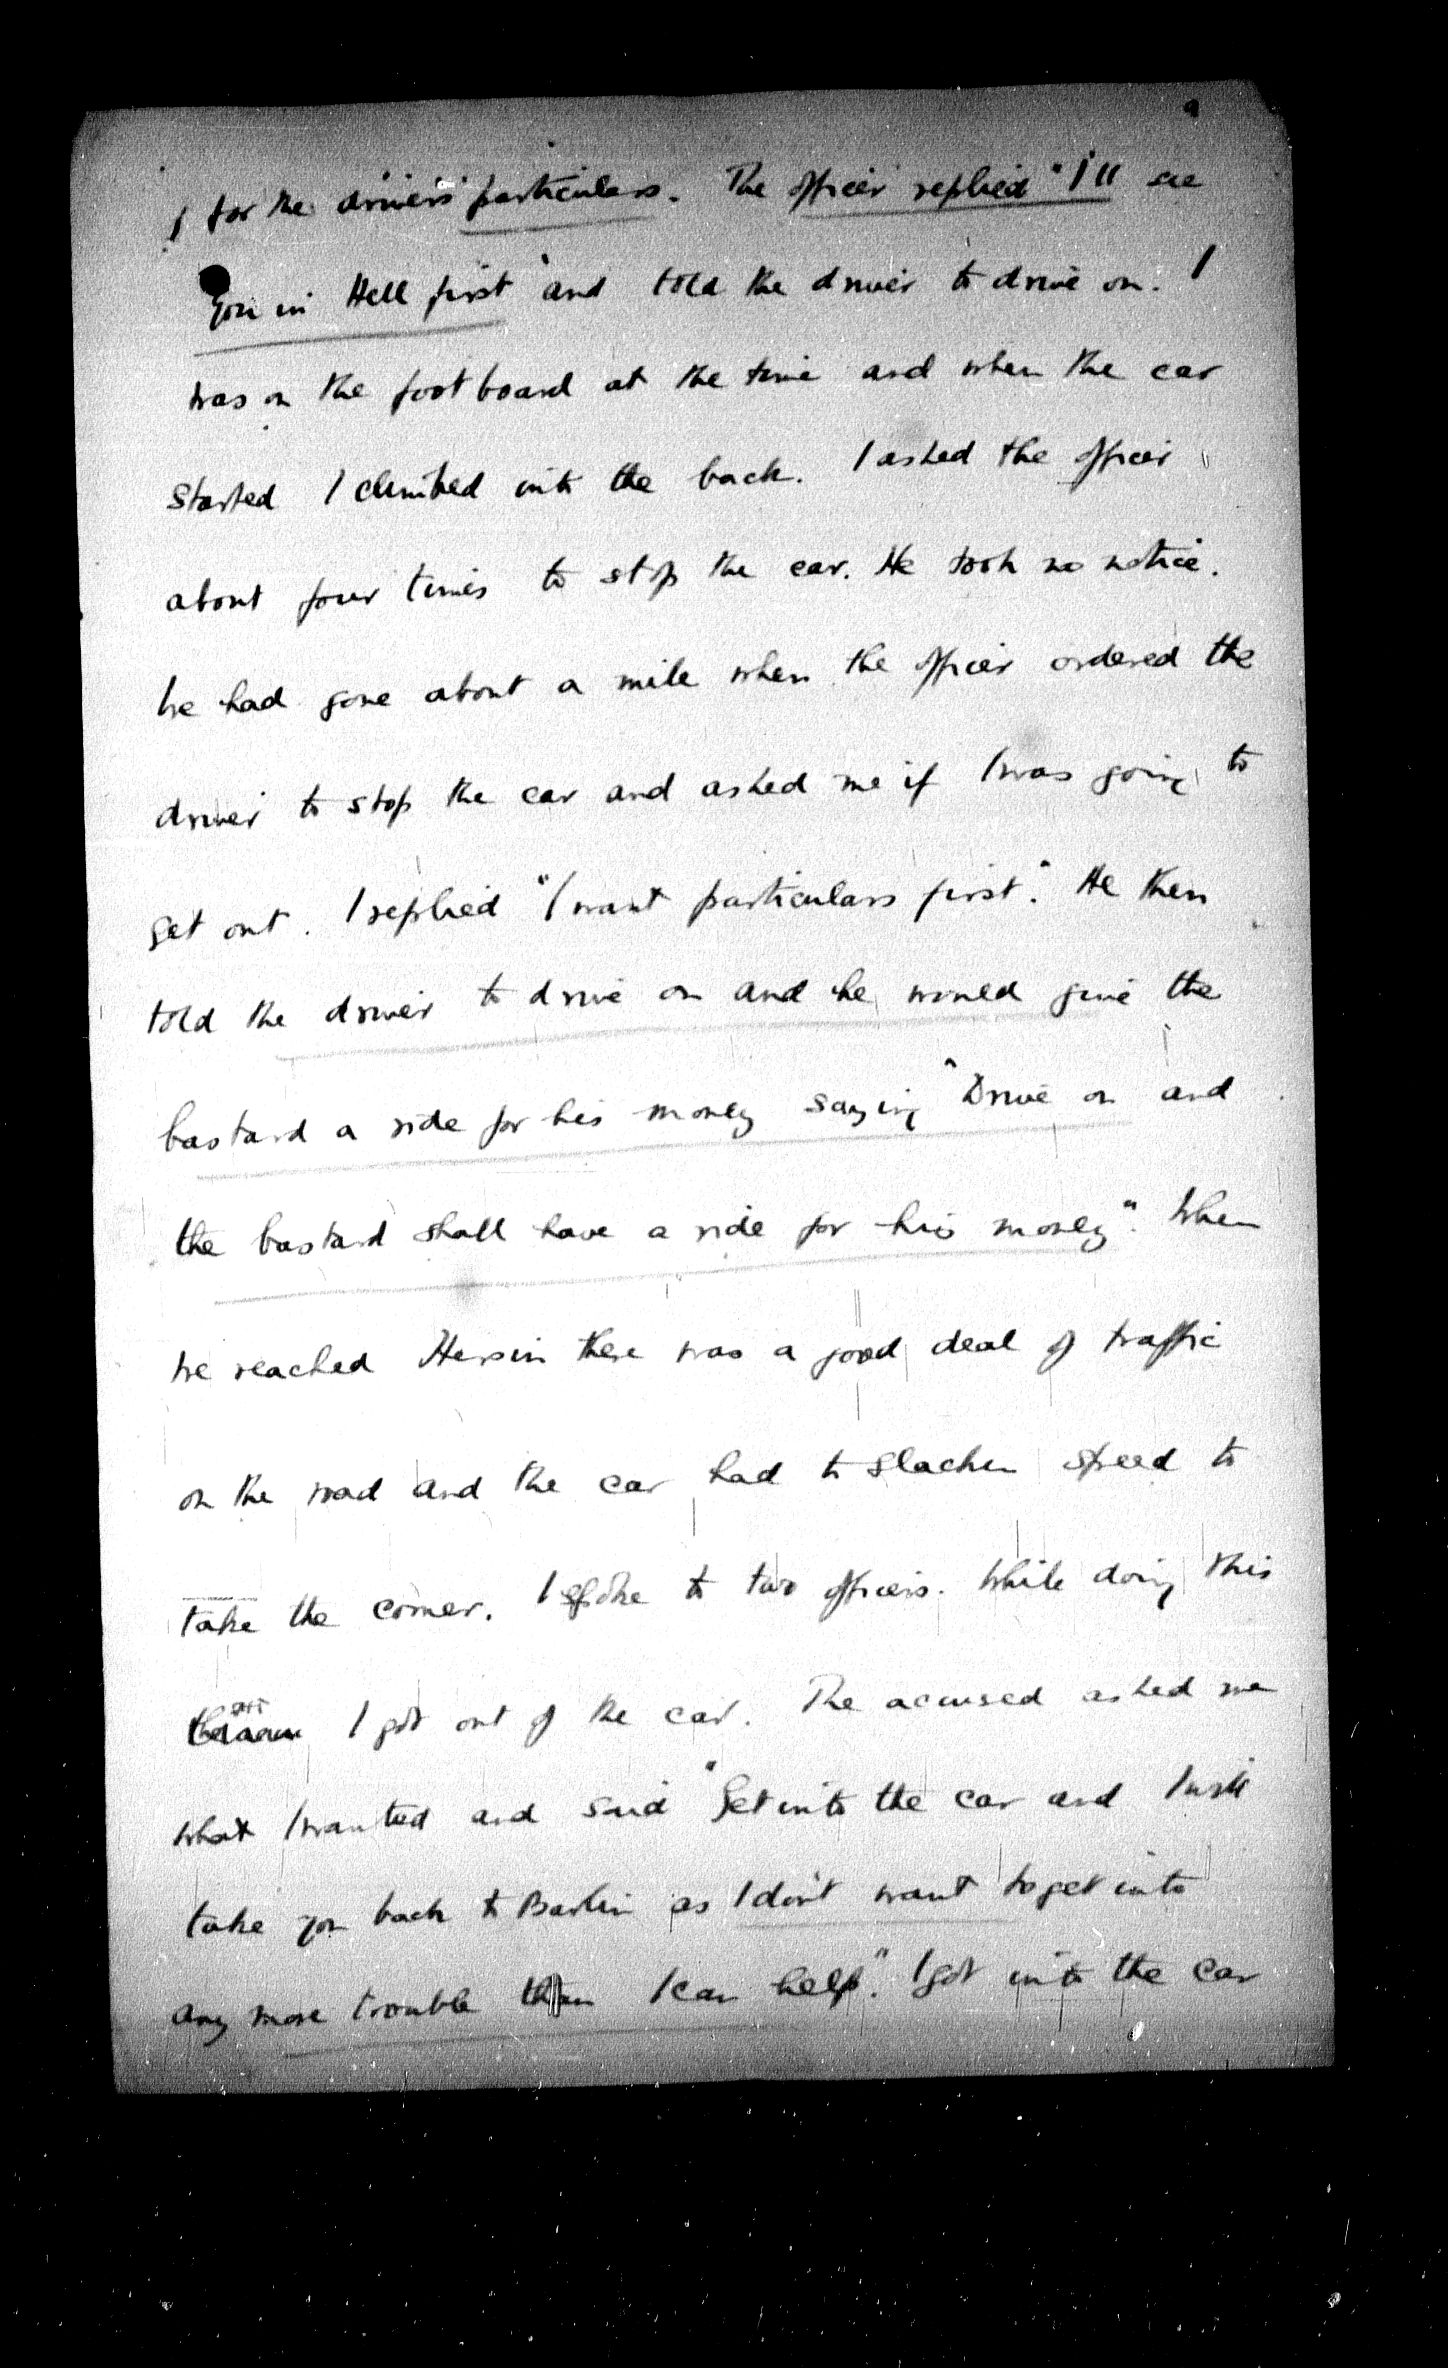 for the drivers particulars. The officer replied "I'll see
you in Hell first" and told the driver to drive on. I
was on the footboard at the time and when the car
started I climbed into the back. I asked the officer
about four times to stop the car. He took no notice.
We had gone about a mile when the officer ordered the
driver to stop the car and asked me if I was going to
get out. I replied "I want particulars first". He then
told the driver to drive on and he would give the
bastard a ride for his money saying "Drive on and
the bastard shall have a ride for his money". When
we reached Hersin there was a good deal of traffic
on the road and the car had to slacken speed to
take the corner. I spoke to two officers. While doing this
I got out of the car. The accused asked me
what I wanted and said "Get into the car and I will
take you back to Barlin as I don't want to get into
any more trouble than I can help". I got into the car